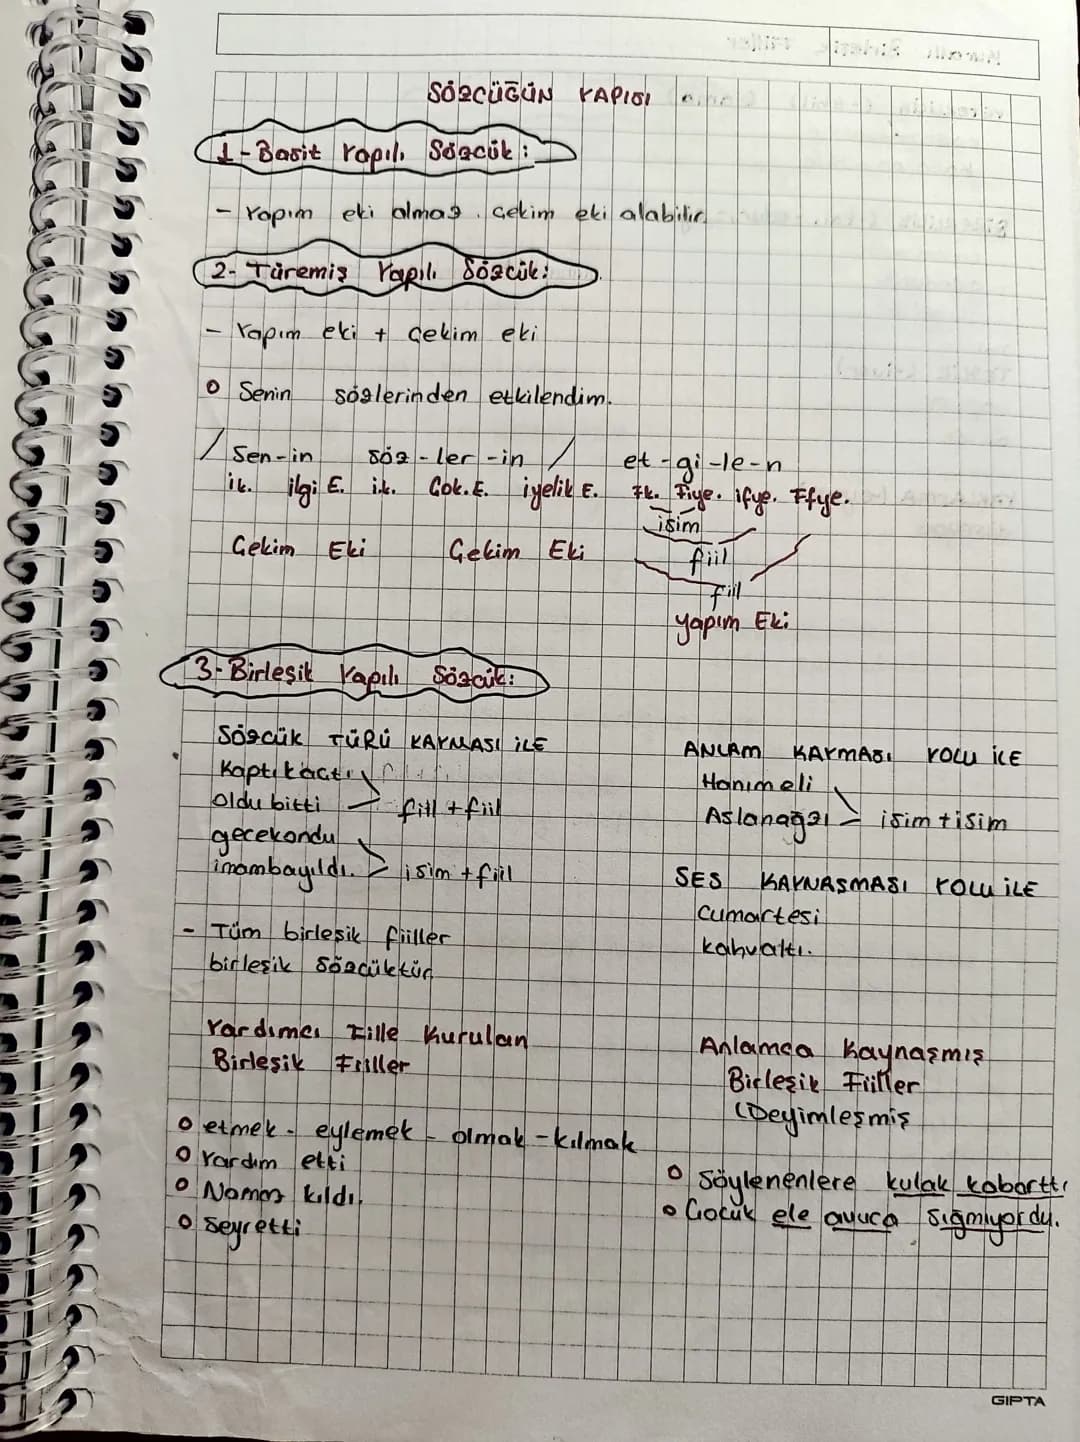 SÖZCÜĞÜN YAPISI
1-Basit Yapılı Sözcük:
- Yapım eki almaz. Çekim eki alabilir.
2- Türemiş Yapılı Sözcük:
- Yapım eki + çekim eki
o Senin sözlerinden etkilendim.
/ Sen-in söz-ler-in / et-gi-le-n
i.k. ilgi E. i.k. Çok.E. iyelik E. F.k. Fiye. ifye. Ffye.
isim
Çekim Eki Çekim Eki fiil
fiil
yapım Eki
3-Birleşik Yapılı Sözcük:
SÖZCÜK TÜRÜ KAYMASI İLE
Kaptıkaçtı
Oldu bitti > fiil + fiil
gecekondu
imambayıldı. > isim + fiil
- Tüm birleşik fiiller
birleşik sözcüktür.
ANLAM KAYMASI YOLU İLE
Hanımeli
Aslanağzı > isim + isim
SES KAYNAŞMASI YOLU İLE
Cumartesi
kahvaltı.
Yardımcı Fiille Kurulan
Birleşik Fiiller
o etmek - eylemek - olmak - kılmak
o Yardım etti
o Namaz kıldı.
o Seyretti
Anlamca Kaynaşmış
Birleşik Fiiller
(Deyimleşmiş
o Söylenenlere kulak kabarttı
o Çocuk ele avuca sığmıyordu.
GIPTA